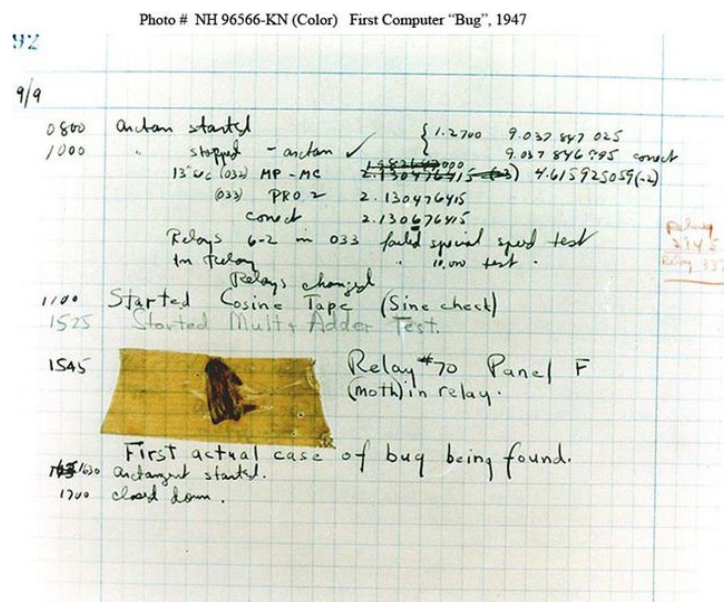 Photo # NH 96566-KN (Color) First Computer "Bug", 1947
92
9/9
0800 antan started { 1.2700 9.037 847 025
1000 " stopped - antan ✓ 9.037 846 995 conect
13"uc (033) MP-MC 2.130476415 (-3) 4.615925059(-2)
(033) PRO 2 2.130476415
conect 2.130676415
Relays 6-2 in 033 failed special speed test
In Relay " 10,000 test.
Relay
2145
Relay 337
Relays changed
1100 Started Cosine Tape (Sine check)
1525 Started Mult + Adder Test.
1545 Relay #70 Panel F
(moth) in relay.
First actual case of bug being found.
1630 antangent started.
1700 closed down.